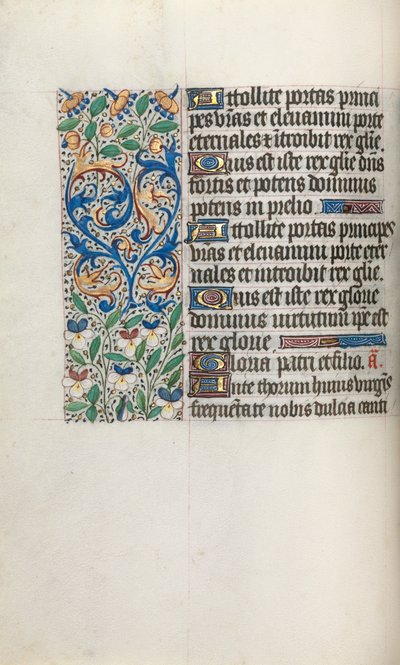 Attollite portas princi
pes vr̃as et eleuamini porte
eternales ⁊ ĩtroibit rex gl̃ie.
Quis est iste rex gl̃ie dñs
fortis et potens dominus
potens in prelio
Attollite portas principes
vr̃as et eleuamini porte eter
nales et introibit rex gl̃ie.
Quis est iste rex glorie
dominus uirtutum ip̃e est
rex glorie.
Gloria patri et filio. ã.
Ante thorum huius virgĩs
frequẽtate nobis dulcia canti